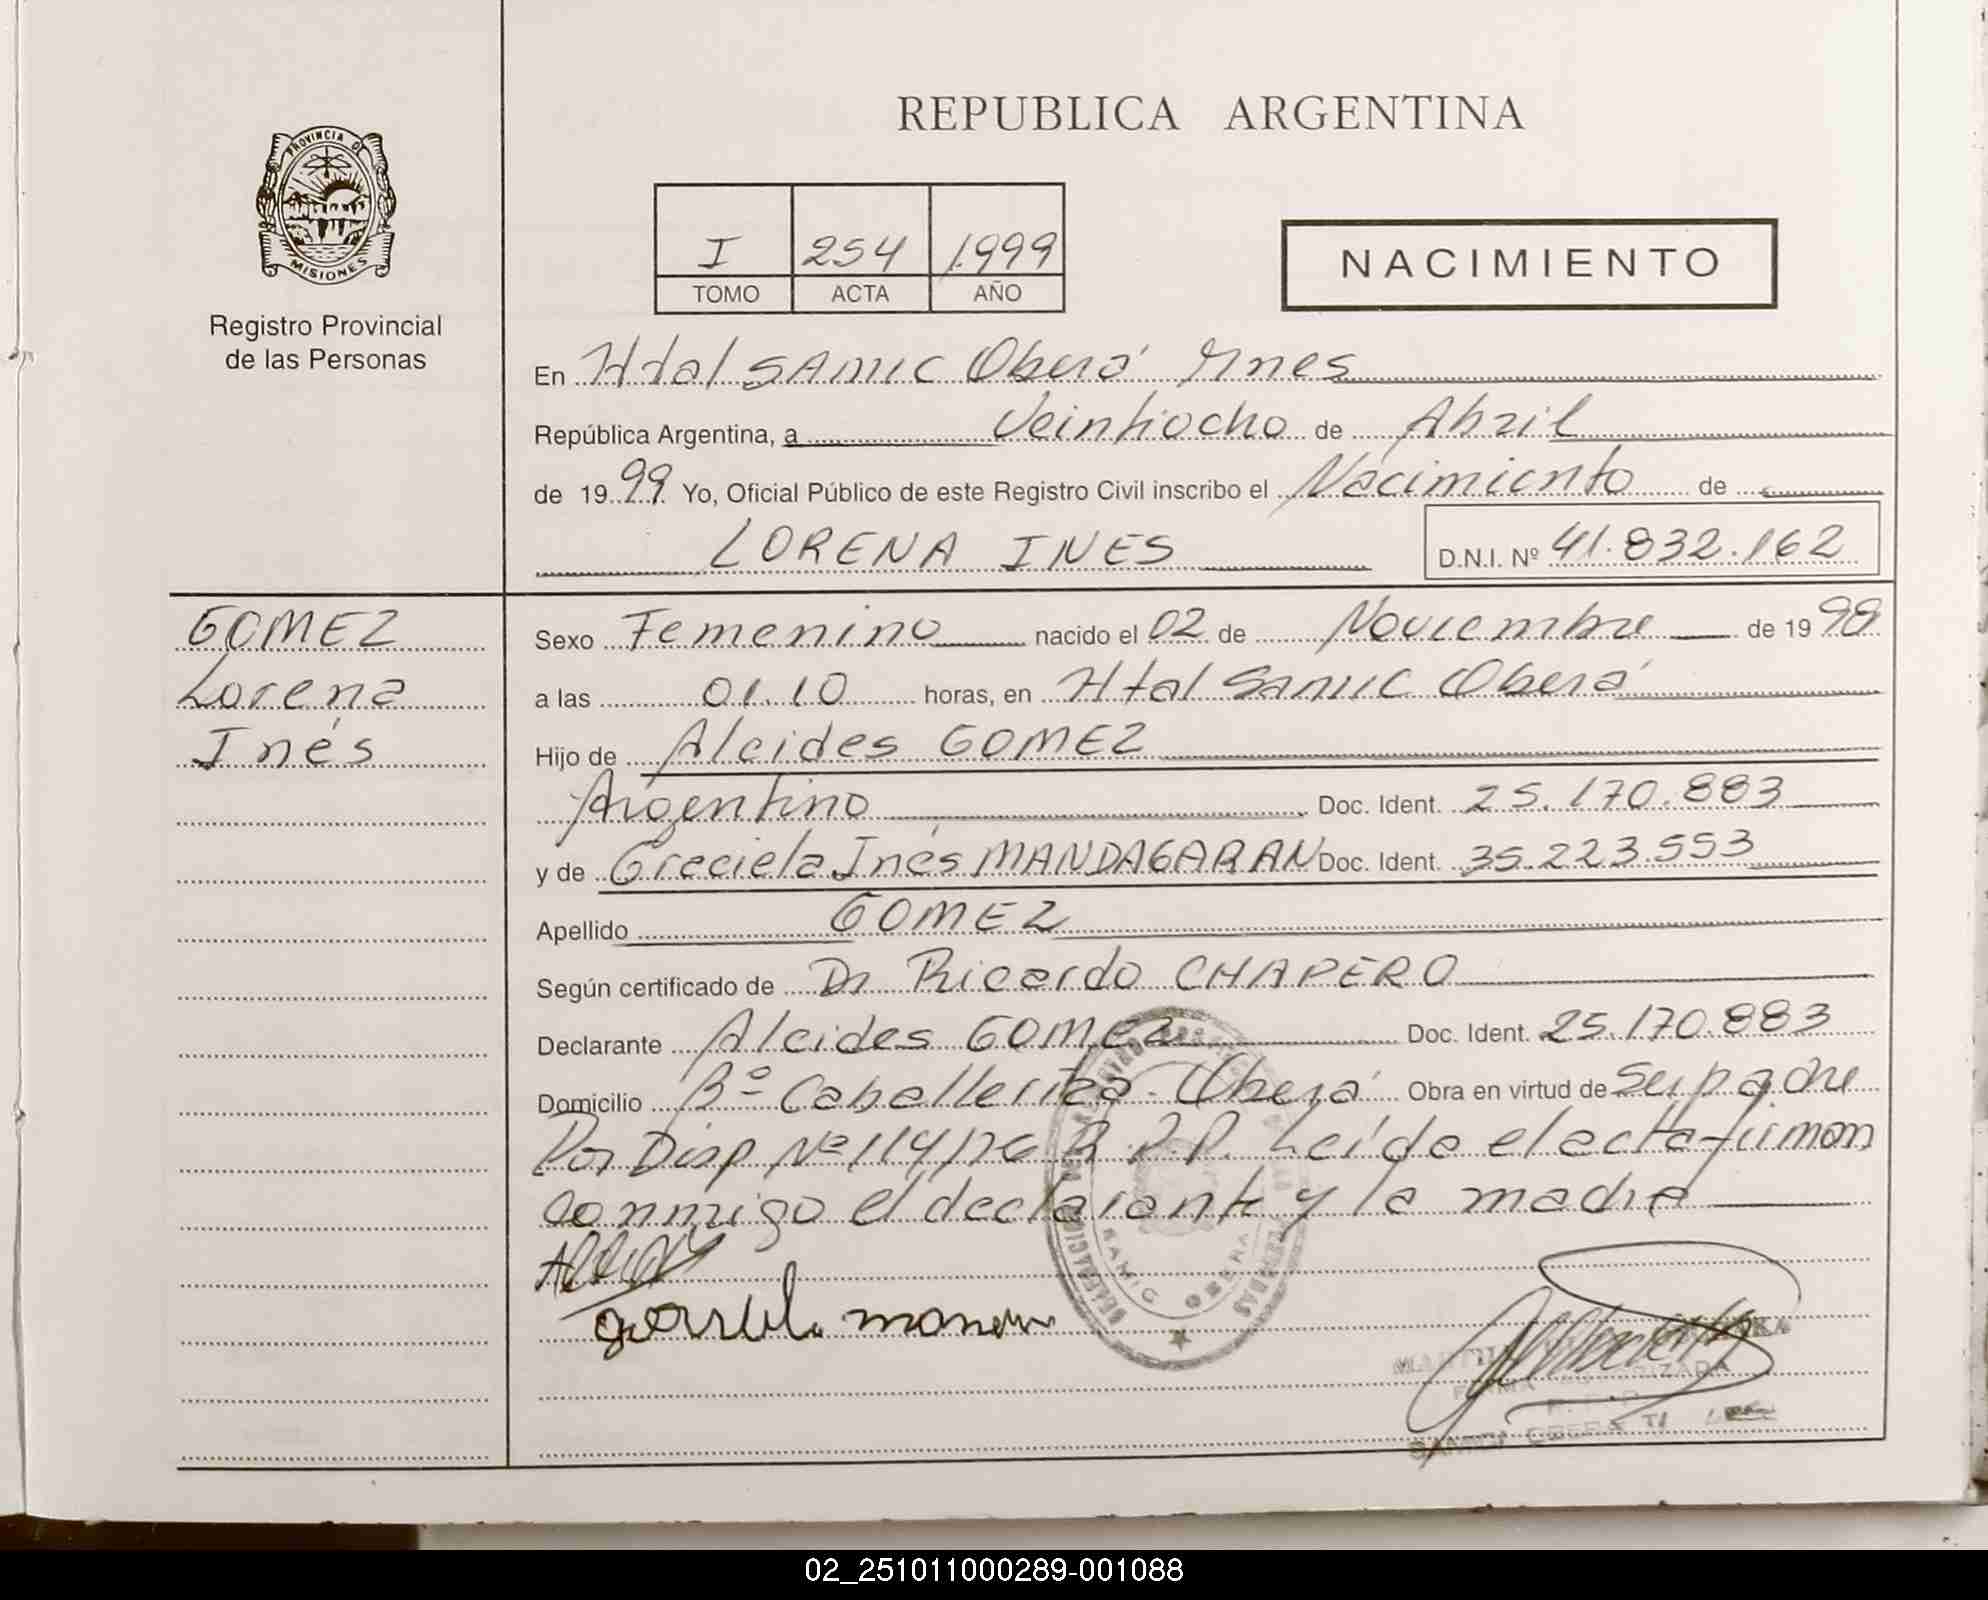 REPUBLICA ARGENTINA
PROVINCIA DE
MISIONES
Registro Provincial
de las Personas
I 254 1.999
TOMO ACTA AÑO
NACIMIENTO
En Htal SAMIC Oberá Mnes
República Argentina, a Veintiocho de Abril
de 1999 Yo, Oficial Público de este Registro Civil inscribo el Nacimiento de
LORENA INES D.N.I. Nº 41.832.162
GOMEZ
Lorena
Inés
Sexo Femenino nacido el 02 de Noviembre de 1998
a las 01.10 horas, en Htal Samic Oberá
Hijo de Alcides GOMEZ
Argentino Doc. Ident. 25.170.883
y de Graciela Inés MANDAGARAN Doc. Ident. 35.223.553
Apellido GOMEZ
Según certificado de Dr Ricardo CHAPERO
Declarante Alcides GOMEZ Doc. Ident. 25.170.883
Domicilio Bº Caballeriza - Oberá Obra en virtud de Ser padre
Por Disp Nº 114/76 R.P.P. Leída el acta firman
conmigo el declarante y la madre
SAMIC OBERA
02_251011000289-001088